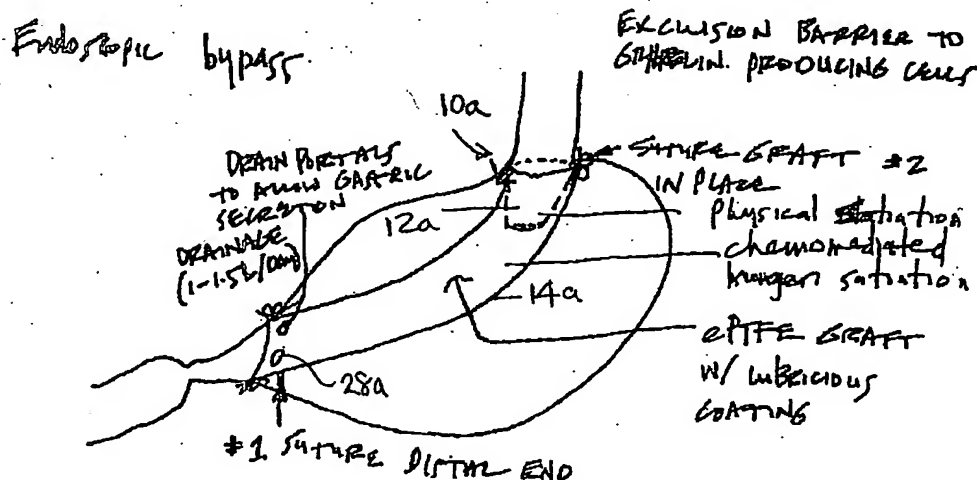 Endoscopic bypass
EXCLUSION BARRIER TO
GHRELIN PRODUCING CELLS
10a
DRAIN PORTALS
TO ALLOW GASTRIC
SECRETION
DRAINAGE
(1-1.5L/Day)
SUTURE GRAFT #2
IN PLACE
12a
Physical satiation
chemomediated
hunger satiation
14a
ePTFE GRAFT
W/ LUBRICIOUS
COATING
28a
#1 SUTURE DISTAL END